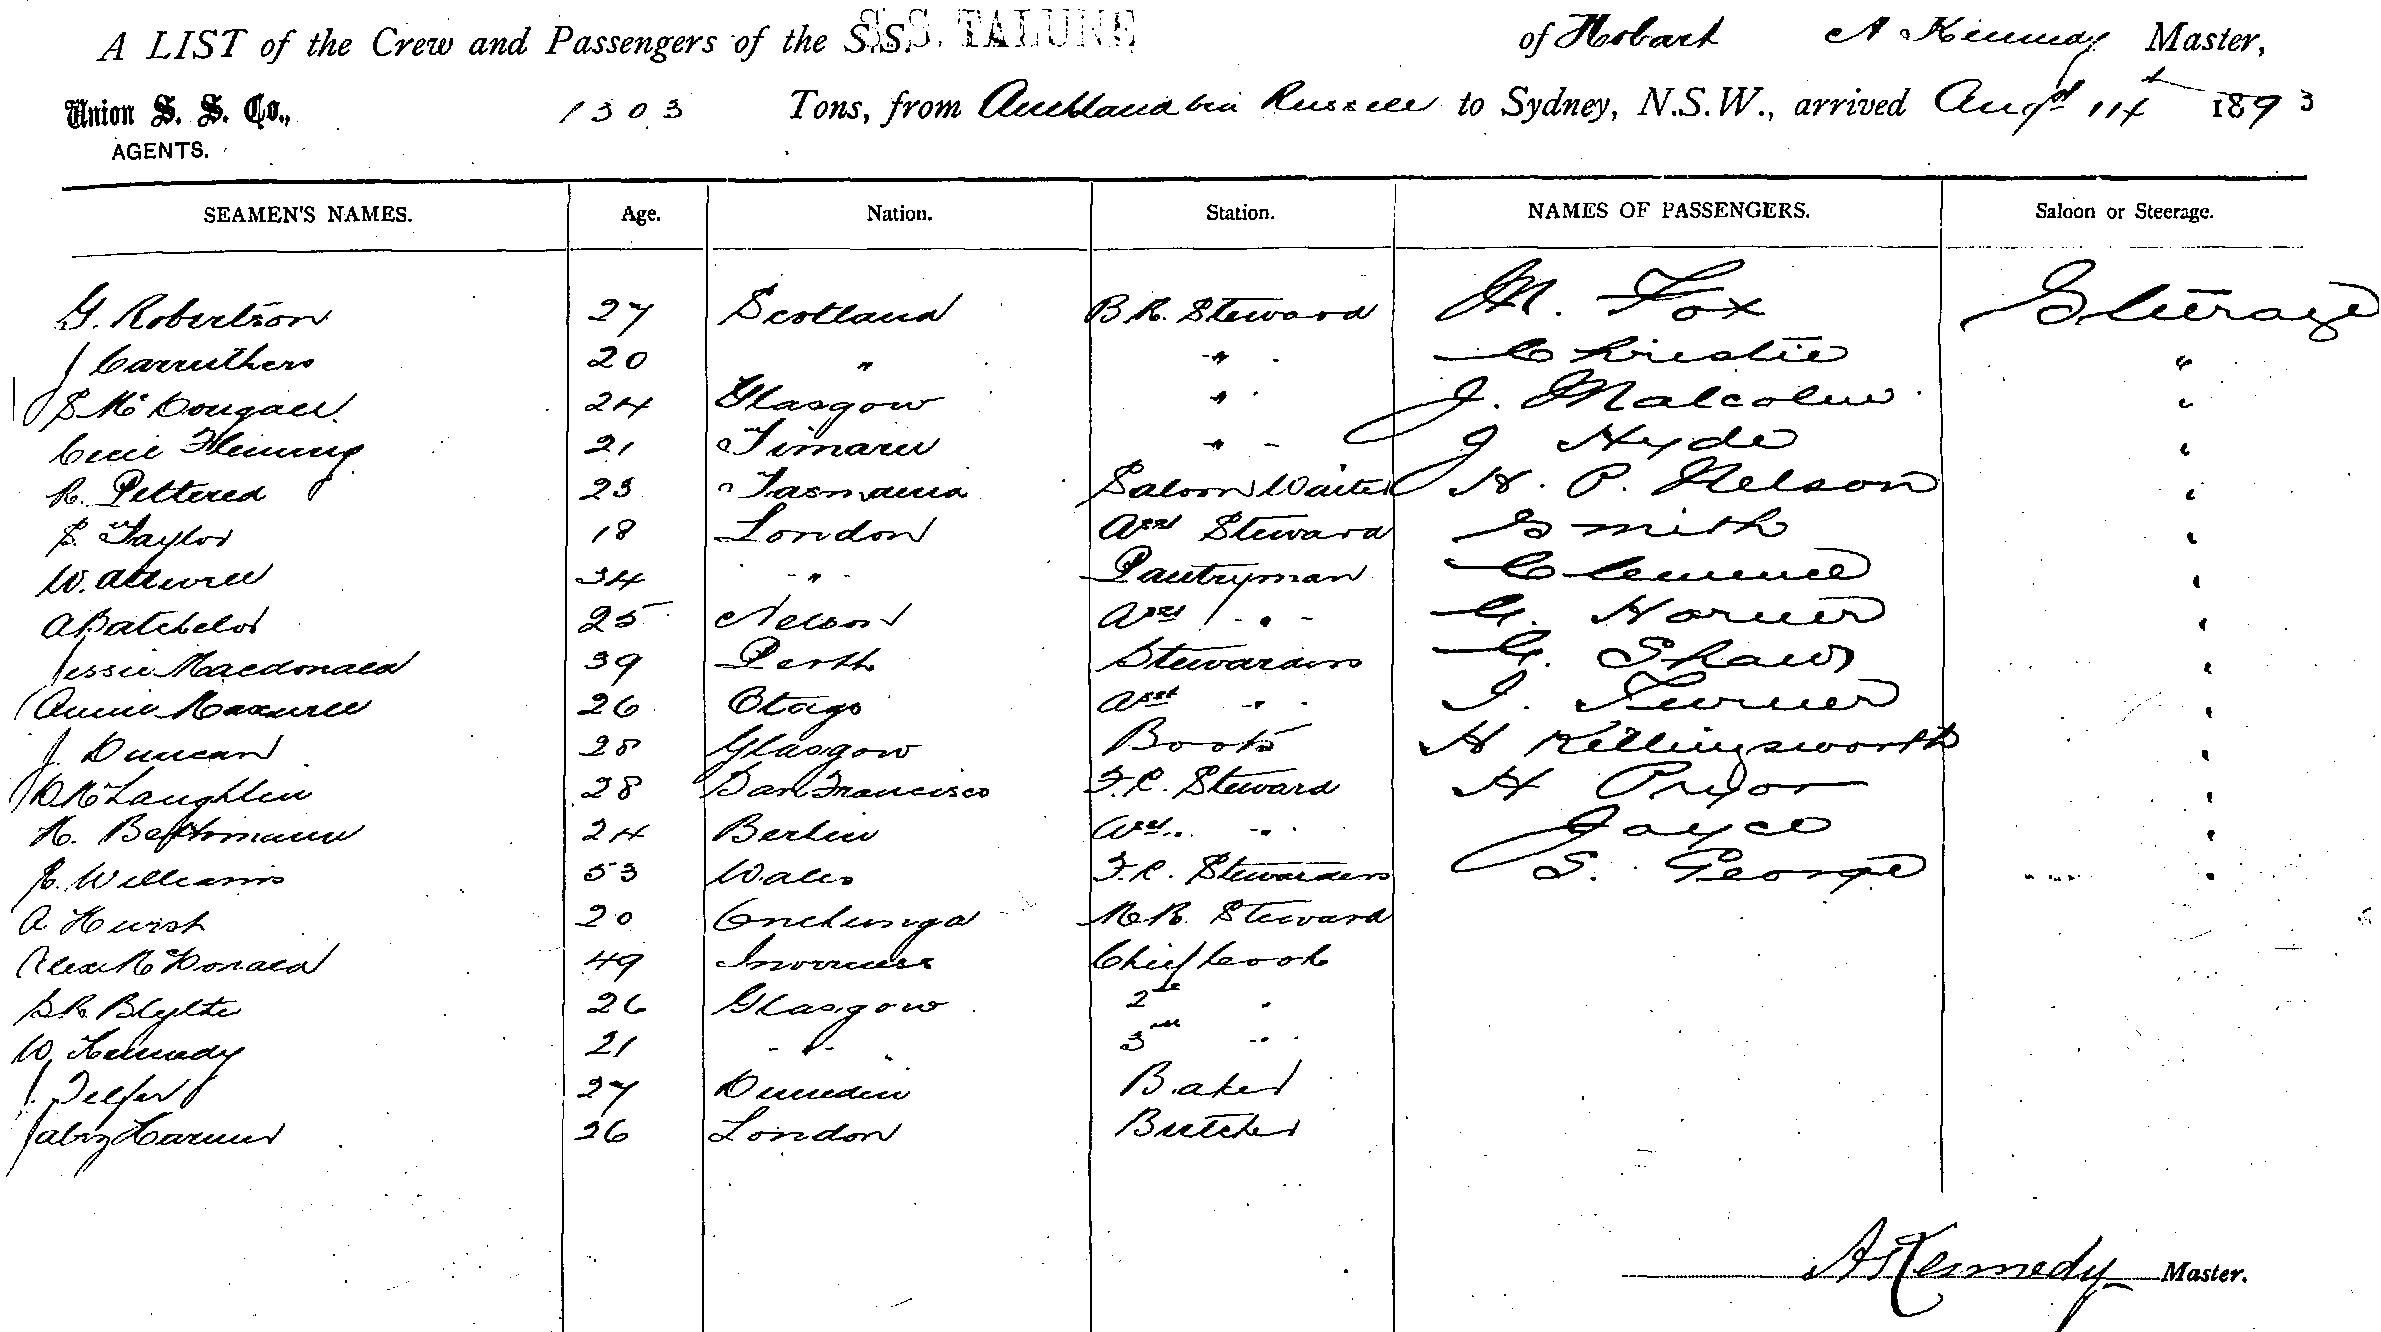 A LIST of the Crew and Passengers of the S.S. S.S. TALUNE of Hobart A Kennedy Master,
Union S. S. Co., 1303 Tons, from Auckland via Russell to Sydney, N.S.W., arrived Augst 14th 1893
AGENTS.
SEAMEN'S NAMES. Age. Nation. Station. NAMES OF PASSENGERS. Saloon or Steerage.
G. Robertson 27 Scotland B.R. Steward M. Fox Steerage
J Carruthers 20 " " Christie "
S McDougall 24 Glasgow " J. Malcolm "
Cecil Fleming 21 Timaru " J Hyde "
R. Pettered 23 Tasmania Saloon Waiter H. P. Nelson "
S. Taylor 18 London Asst Steward Smith "
W. Attwell 34 " Pantryman "
A Batchelor 25 Nelson Asst " G. Horner "
Jessie Macdonald 39 Perth Stewardess G. Shaw "
Annie Maxwell 26 Otago Asst " J. Turner "
J. Duncan 28 Glasgow Boots H Killingsworth "
D McLaughlin 28 San Francisco F.C. Steward H Pryor "
H. 24 Berlin Asst " Joyce "
E. Williams 53 Wales F.C. Stewardess S. George "
A Hurst 20 Onehunga M.R. Steward
Alex McDonald 49 Inverness Chief Cook
S R Blythe 26 Glasgow 2nd "
W. Kennedy 21 " 3rd "
J. Telfer 27 Dunedin Baker
Jabez Harmer 26 London Butcher
A Kennedy Master.